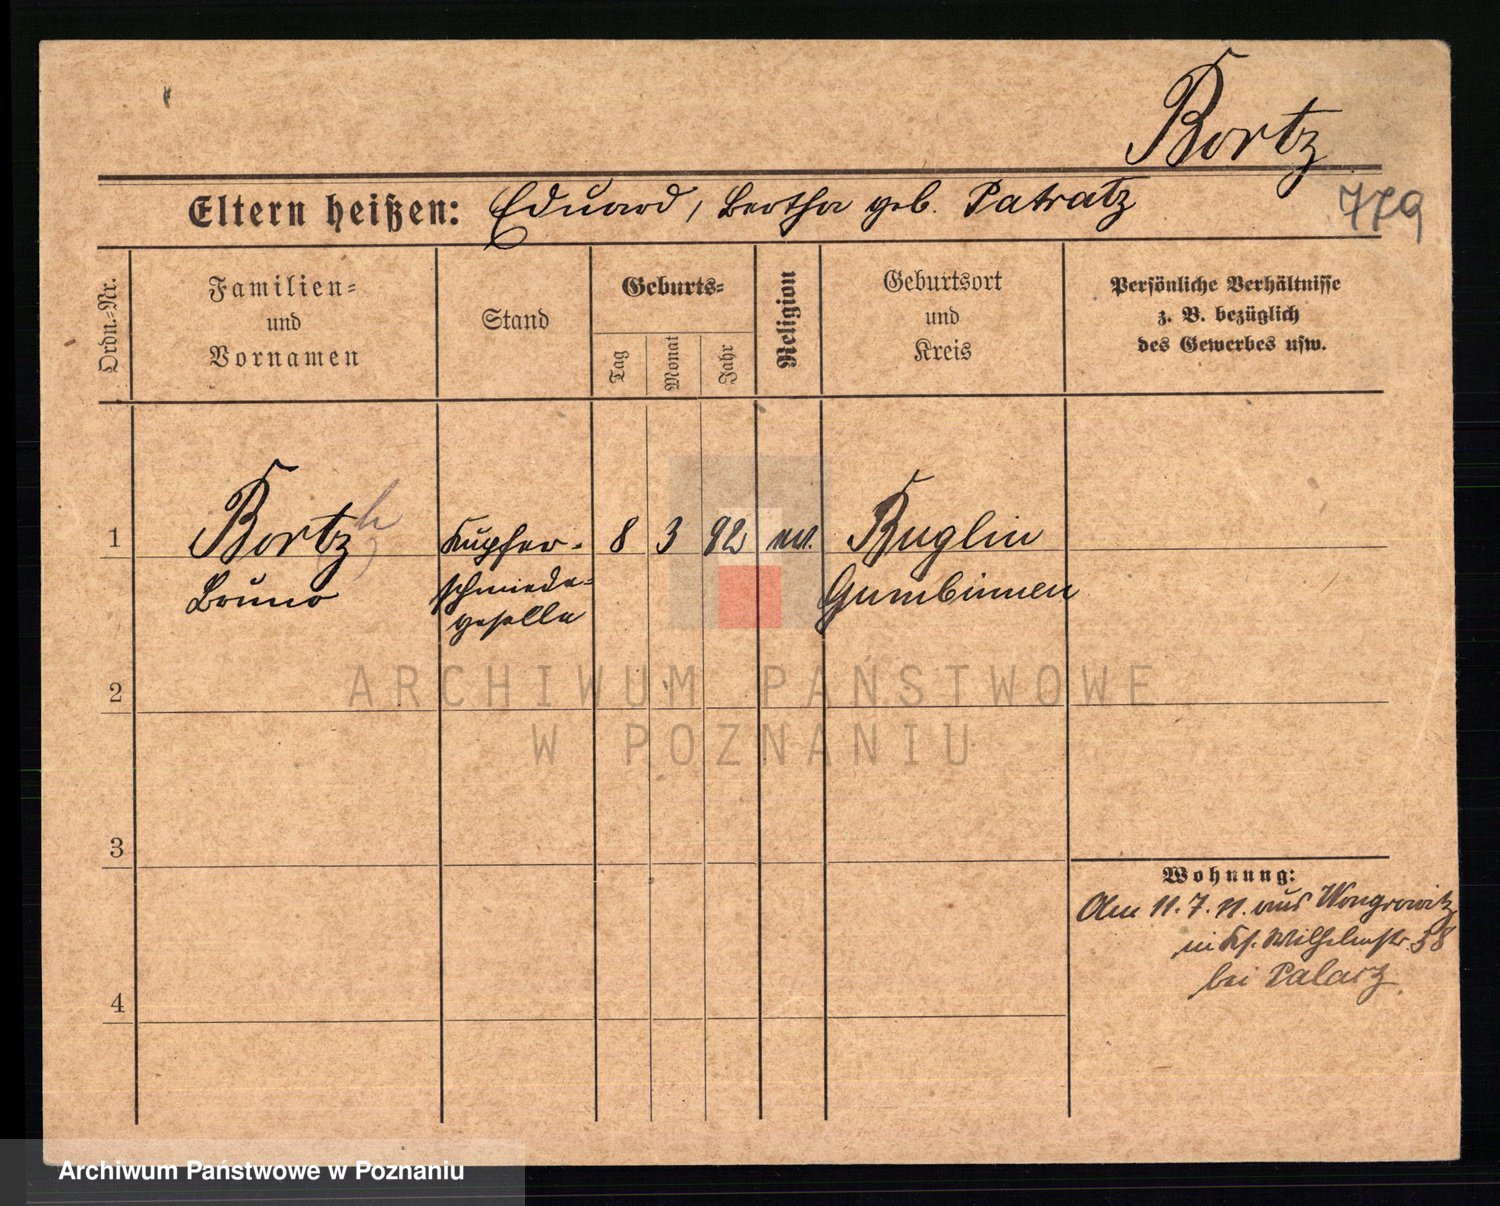 Bortz
Eltern heißen: Eduard, Bertha geb. Patratz
779
Ordn.-Nr.
Familien-
und
Vornamen
Stand
Geburts-
Tag
Monat
Jahr
Religion
Geburtsort
und
Kreis
Persönliche Verhältnisse
z. B. bezüglich
des Gewerbes usw.
1
Bortz h
Bruno
Kupfer-
schmiede-
geselle
8
3
92
ev.
Buglin
Gumbinnen
2
3
4
Wohnung:
Am 11.7.11. aus Wongrowitz
in Ks. Wilhelmstr. 38
bei Palacz
ARCHIWUM PAŃSTWOWE
W POZNANIU
Archiwum Państwowe w Poznaniu